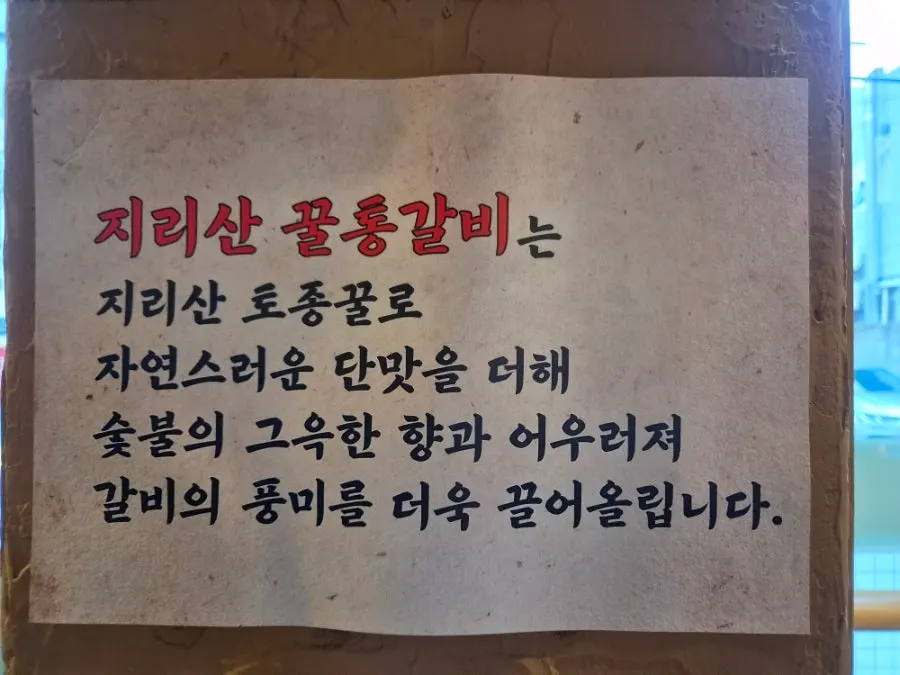 지리산 꿀통갈비는
지리산 토종꿀로
자연스러운 단맛을 더해
숯불의 그윽한 향과 어우러져
갈비의 풍미를 더욱 끌어올립니다.